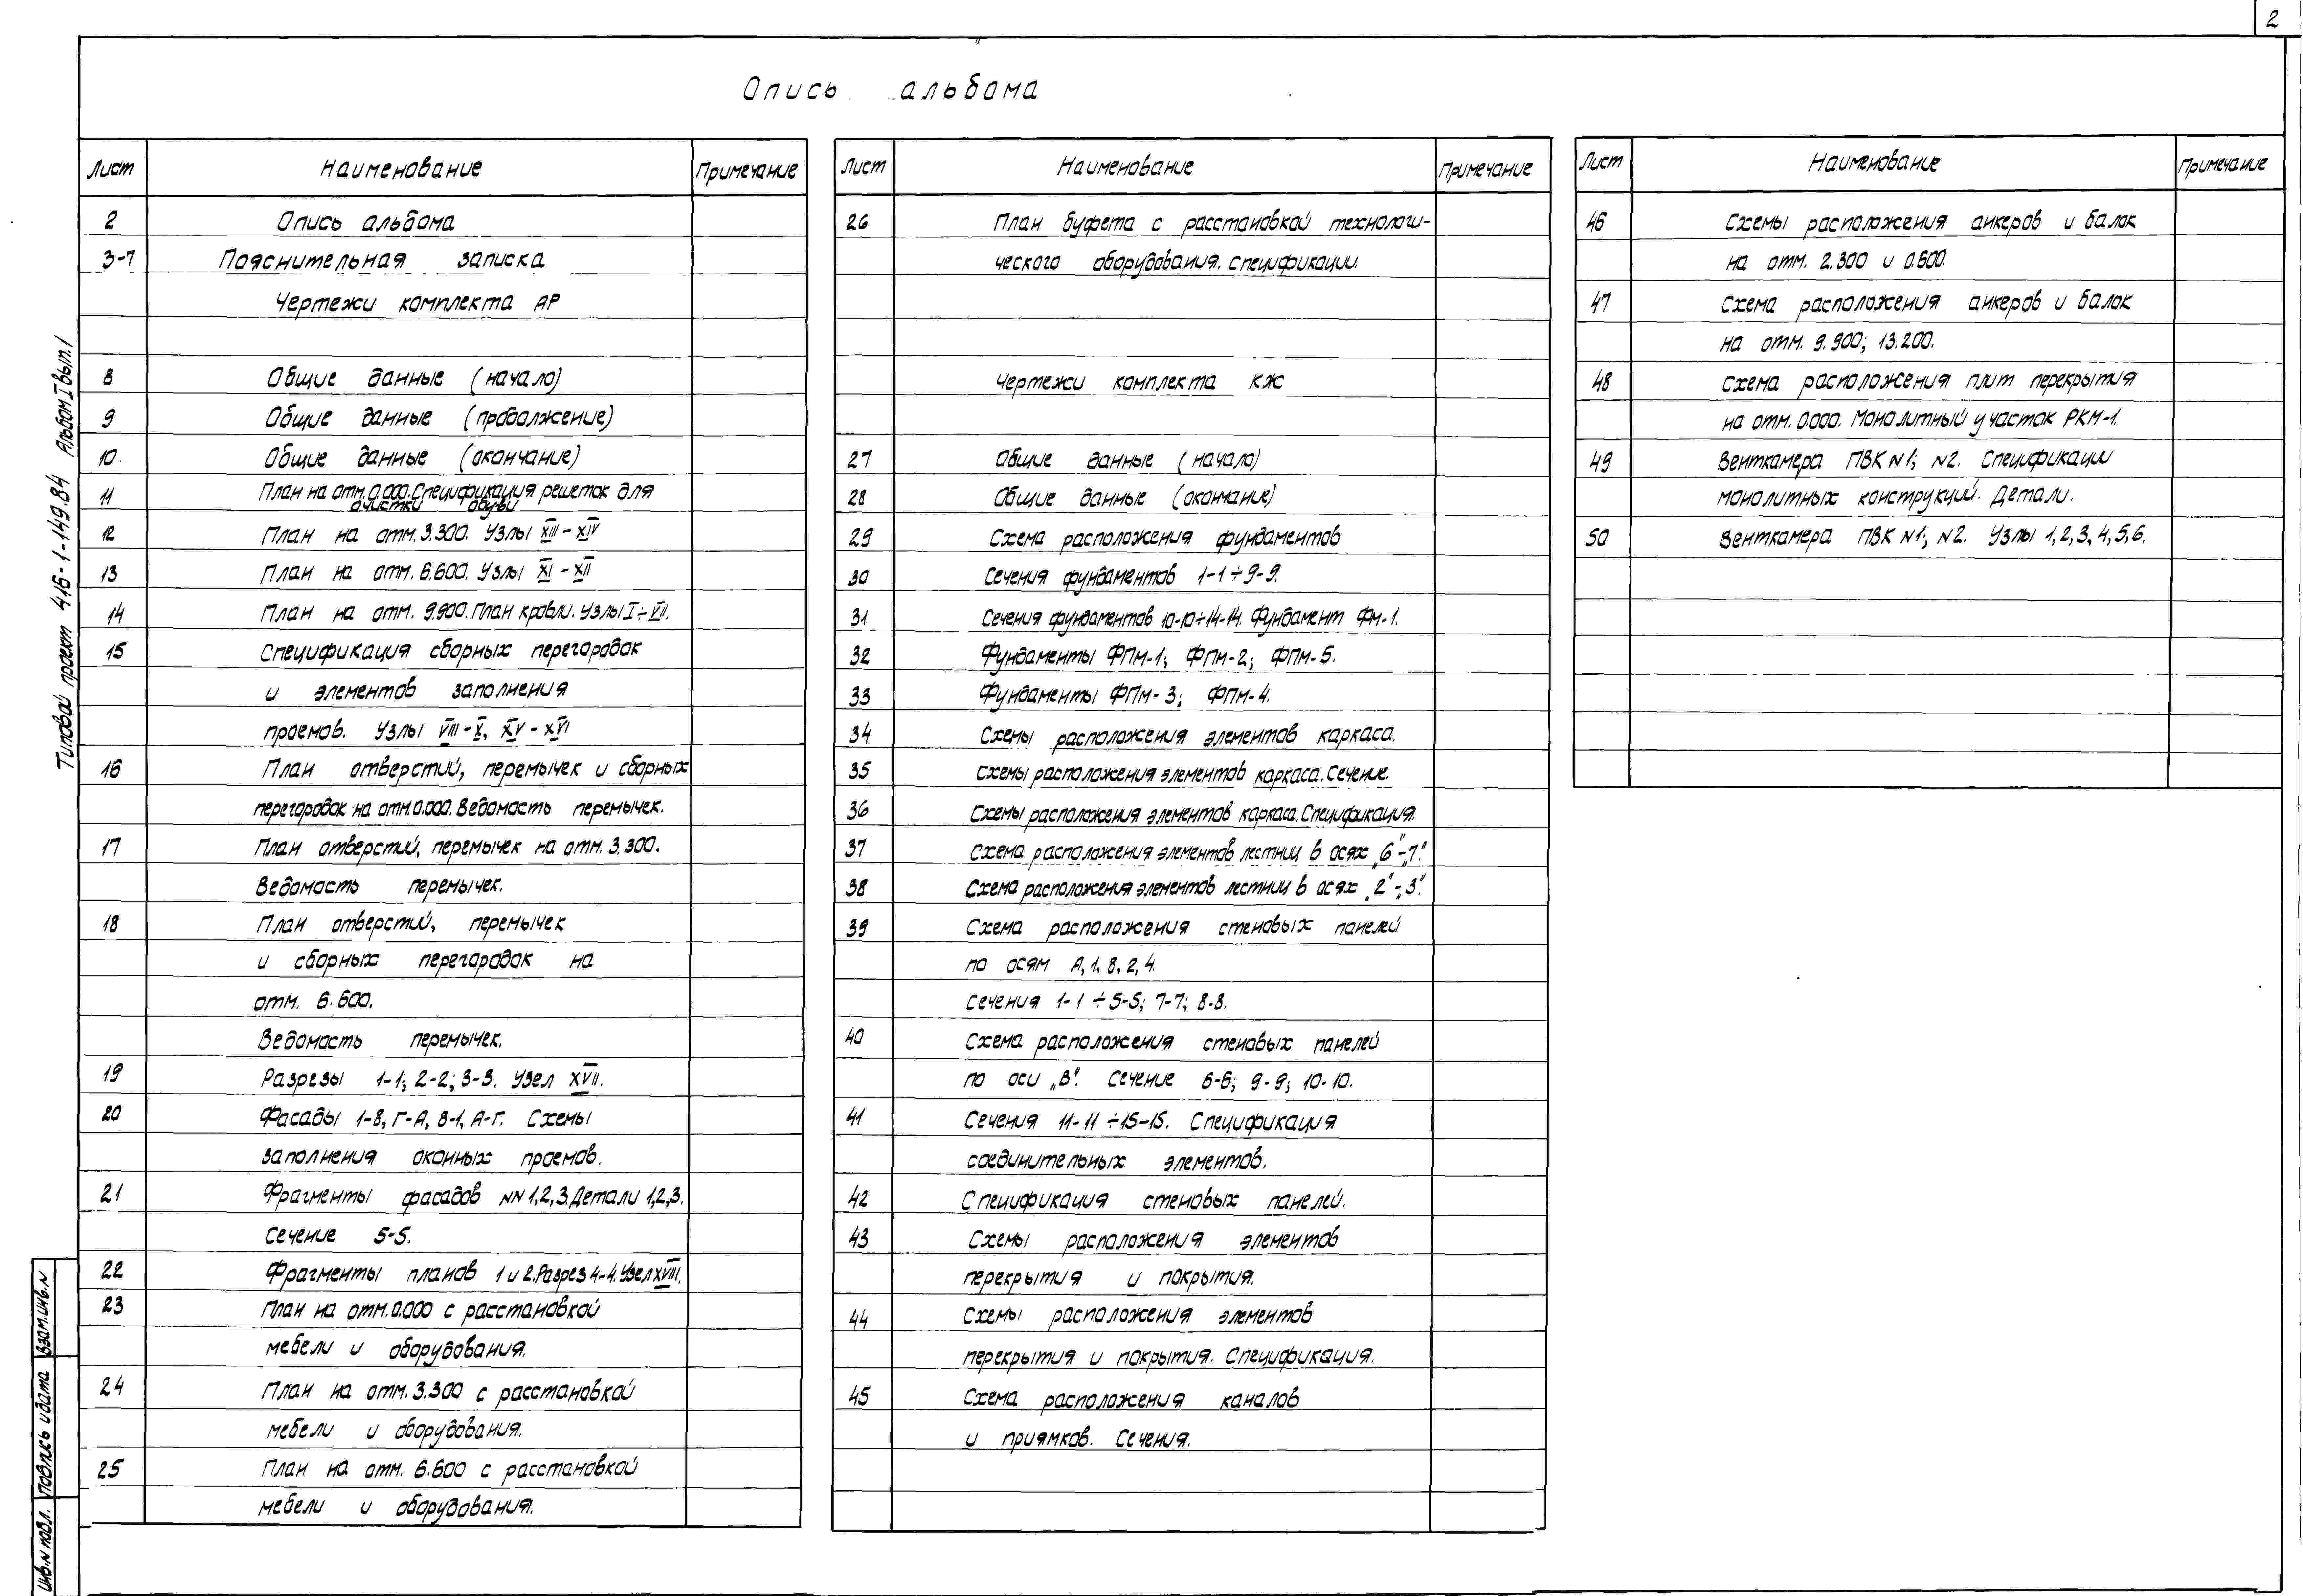 2
Опись альбома
Типовой проект 416-1-149.84 Альбом I вып.1
Лист Наименование Примечание
2 Опись альбома
3-7 Пояснительная записка
Чертежи комплекта АР
8 Общие данные (начало)
9 Общие данные (продолжение)
10 Общие данные (окончание)
11 План на отм. 0.000. Спецификация решеток для
очистки обуви
12 План на отм. 3.300. Узлы XIII-XIV
13 План на отм. 6.600. Узлы XI-XII
14 План на отм. 9.900. План кровли. Узлы I÷VII.
15 Спецификация сборных перегородок
и элементов заполнения
проемов. Узлы VIII-X, XV-XVI
16 План отверстий, перемычек и сборных
перегородок на отм. 0.000. Ведомость перемычек.
17 План отверстий, перемычек на отм. 3.300.
Ведомость перемычек.
18 План отверстий, перемычек
и сборных перегородок на
отм. 6.600.
Ведомость перемычек.
19 Разрезы 1-1; 2-2; 3-3. Узел XVII.
20 Фасады 1-8, Г-А, 8-1, А-Г. Схемы
заполнения оконных проемов.
21 Фрагменты фасадов NN 1,2,3. Детали 1,2,3.
Сечение 5-5.
22 Фрагменты планов 1 и 2. Разрез 4-4. Узел XVIII.
23 План на отм. 0.000 с расстановкой
мебели и оборудования.
24 План на отм. 3.300 с расстановкой
мебели и оборудования.
25 План на отм. 6.600 с расстановкой
мебели и оборудования.
Лист Наименование Примечание
26 План буфета с расстановкой технологи-
ческого оборудования. Спецификации.
Чертежи комплекта КЖ
27 Общие данные (начало)
28 Общие данные (окончание)
29 Схема расположения фундаментов
30 Сечения фундаментов 1-1÷9-9.
31 Сечения фундаментов 10-10÷14-14. Фундамент Фм-1.
32 Фундаменты ФПм-1; ФПм-2; ФПм-5.
33 Фундаменты ФПм-3; ФПм-4.
34 Схемы расположения элементов каркаса.
35 Схемы расположения элементов каркаса. Сечение.
36 Схемы расположения элементов каркаса. Спецификация.
37 Схема расположения элементов лестниц в осях „6"-„7".
38 Схема расположения элементов лестниц в осях „2"-„3".
39 Схема расположения стеновых панелей
по осям А, 1, 8, 2, 4.
Сечения 1-1÷5-5; 7-7; 8-8.
40 Схема расположения стеновых панелей
по оси „В". Сечение 6-6; 9-9; 10-10.
41 Сечения 11-11÷15-15. Спецификация
соединительных элементов.
42 Спецификация стеновых панелей.
43 Схемы расположения элементов
перекрытия и покрытия.
44 Схемы расположения элементов
перекрытия и покрытия. Спецификация.
45 Схема расположения каналов
и приямков. Сечения.
Лист Наименование Примечание
46 Схемы расположения анкеров и балок
на отм. 2.300 и 0.600.
47 Схема расположения анкеров и балок
на отм. 9.900; 13.200.
48 Схема расположения плит перекрытия
на отм. 0.000. Монолитный участок РКМ-1.
49 Венткамера ПВК N1; N2. Спецификации
монолитных конструкций. Детали.
50 Венткамера ПВК N1; N2. Узлы 1,2,3,4,5,6.
Инв. N подл. Подпись и дата Взам. инв. N